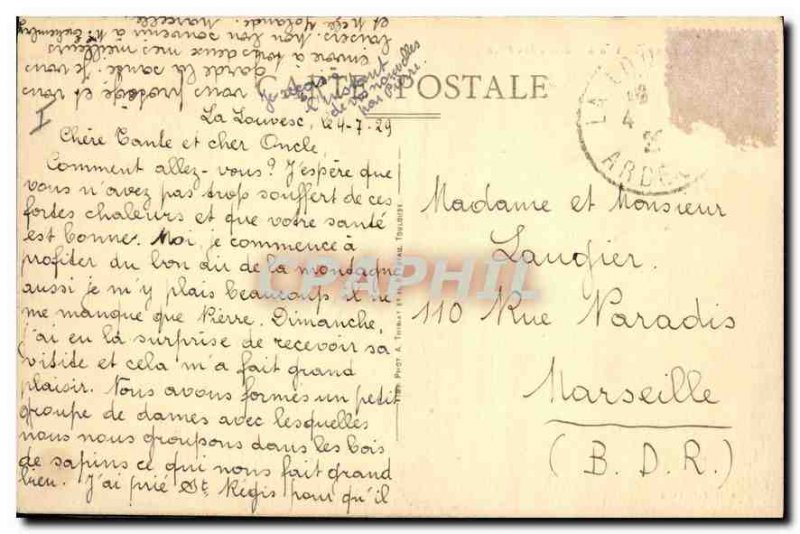 CARTE POSTALE
La Louvesc, le 4-7-29
Chère Tante et cher Oncle,
Comment allez-vous? J'espère que
vous n'avez pas trop souffert de ces
fortes chaleurs et que votre santé
est bonne. Moi, je commence à
profiter du bon air de la montagne
aussi je m'y plais beaucoup il ne
me manque que Pierre. Dimanche,
j'ai eu la surprise de recevoir sa
visite et cela m'a fait grand
plaisir. Nous avons formés un petit
groupe de dames avec lesquelles
nous nous groupons dans les bois
de sapins ce qui nous fait grand
bien. J'ai prié St Régis pour qu'il
vous protège et vous
garde la santé. Je vous
envoie à tous deux mes meilleurs
baisers. Mon bon souvenir à
et Marcelle.
je reçois à
l'instant
de vos nouvelles
par Pierre.
I
Madame et Monsieur
Laugier.
110 Rue Paradis
Marseille
(B. D. R.)
LA LOUVESC
4
ARDE
PHOT A. THIRIAT TOULOUSE
CPAPHIL